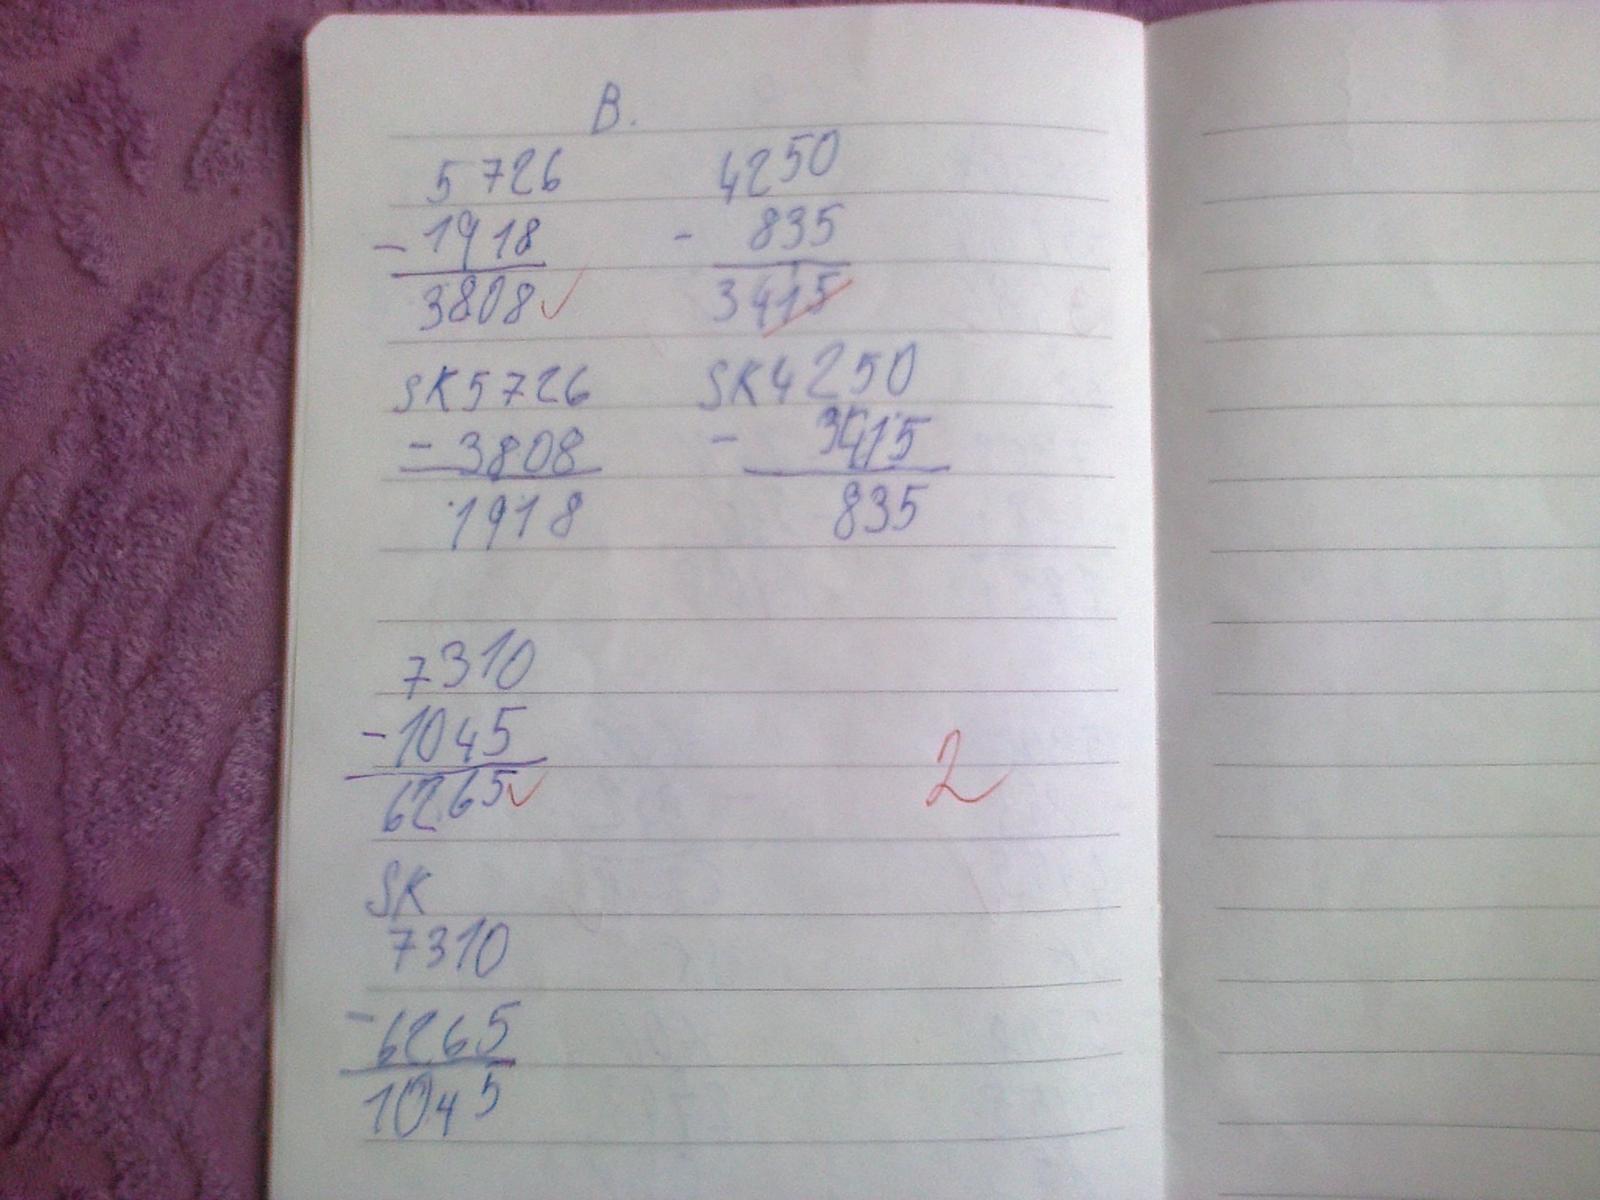 B.
5726 4250
- 1918 - 835
3808 ✓ 3415
SK 5726 SK 4250
- 3808 - 3415
1918 835
7310
- 1045
6265 ✓
2
SK
7310
- 6265
1045